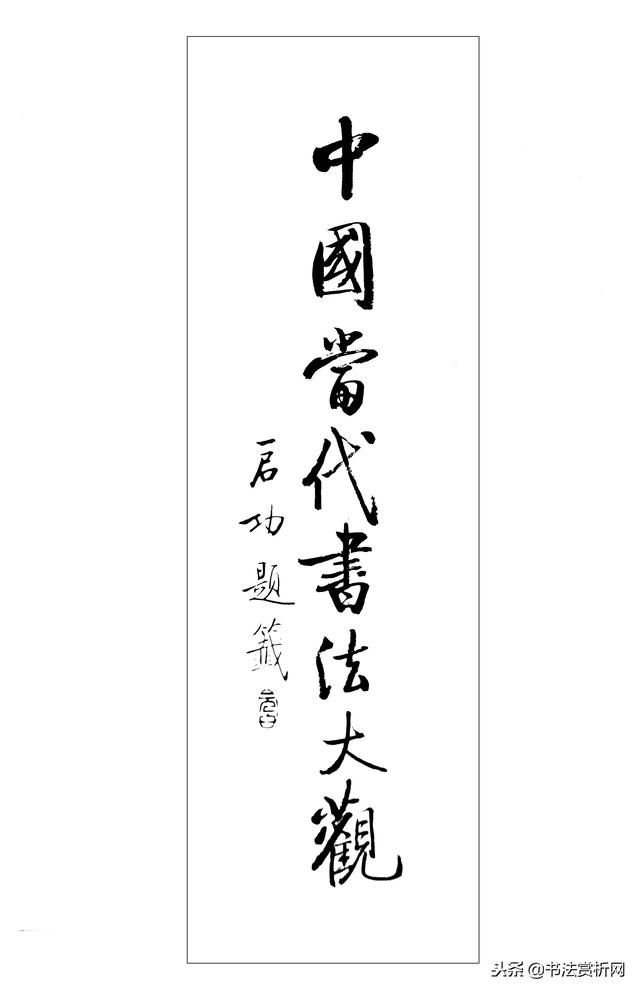 中國當代書法大觀
启功題籤
头条 @书法赏析网